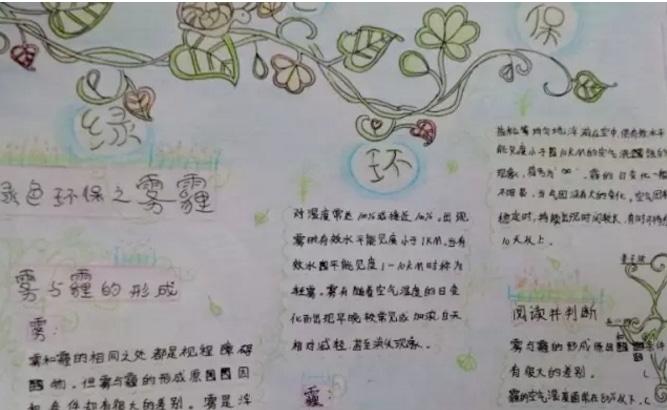 保
绿
环
绿色环保之雾霾
雾与霾的形成
雾:
雾和霾的相同之处都是视程障碍
物。但雾与霾的形成原因
条件却有很大的差别。雾是浮
对湿度常达100%或接近100%。出现
雾时有效水平能见度小于1KM。当有
效水平能见度1-10KM时称为
轻雾。雾有随着空气湿度的日变
化而出现早晚较常见或加浓,白天
相对减轻甚至消失现象。
霾:
能见度小于10KM的空气
现象,符号为"∞"。霾的日变化一般
不明显。当气团没有大的变化,空气团
稳定时,持续出现时间较长,有时可持续
10天以上。
阅读并判断
雾与霾的形成原因条件
有很大的差别。
霾的空气湿度通常在80%以下。